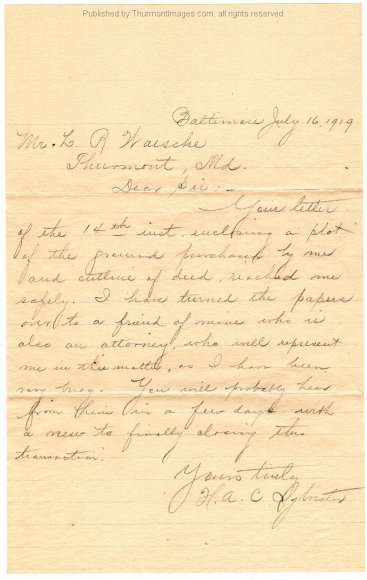 Published by ThurmontImages.com, all rights reserved
Baltimore July 16, 1919
Mr. L. R Waesche
Thurmont, Md.
Dear Sir:-
Your letter
of the 14th inst, enclosing a plot
of the ground purchased by me
and outline of deed, reached me
safely. I have turned the papers
over to a friend of mine who is
also an attorney, who will represent
me in this matter, as I have been
very busy. You will probably hear
from them in a few days with
a view to finally closing this
transaction.
Yours truly
H. A. C